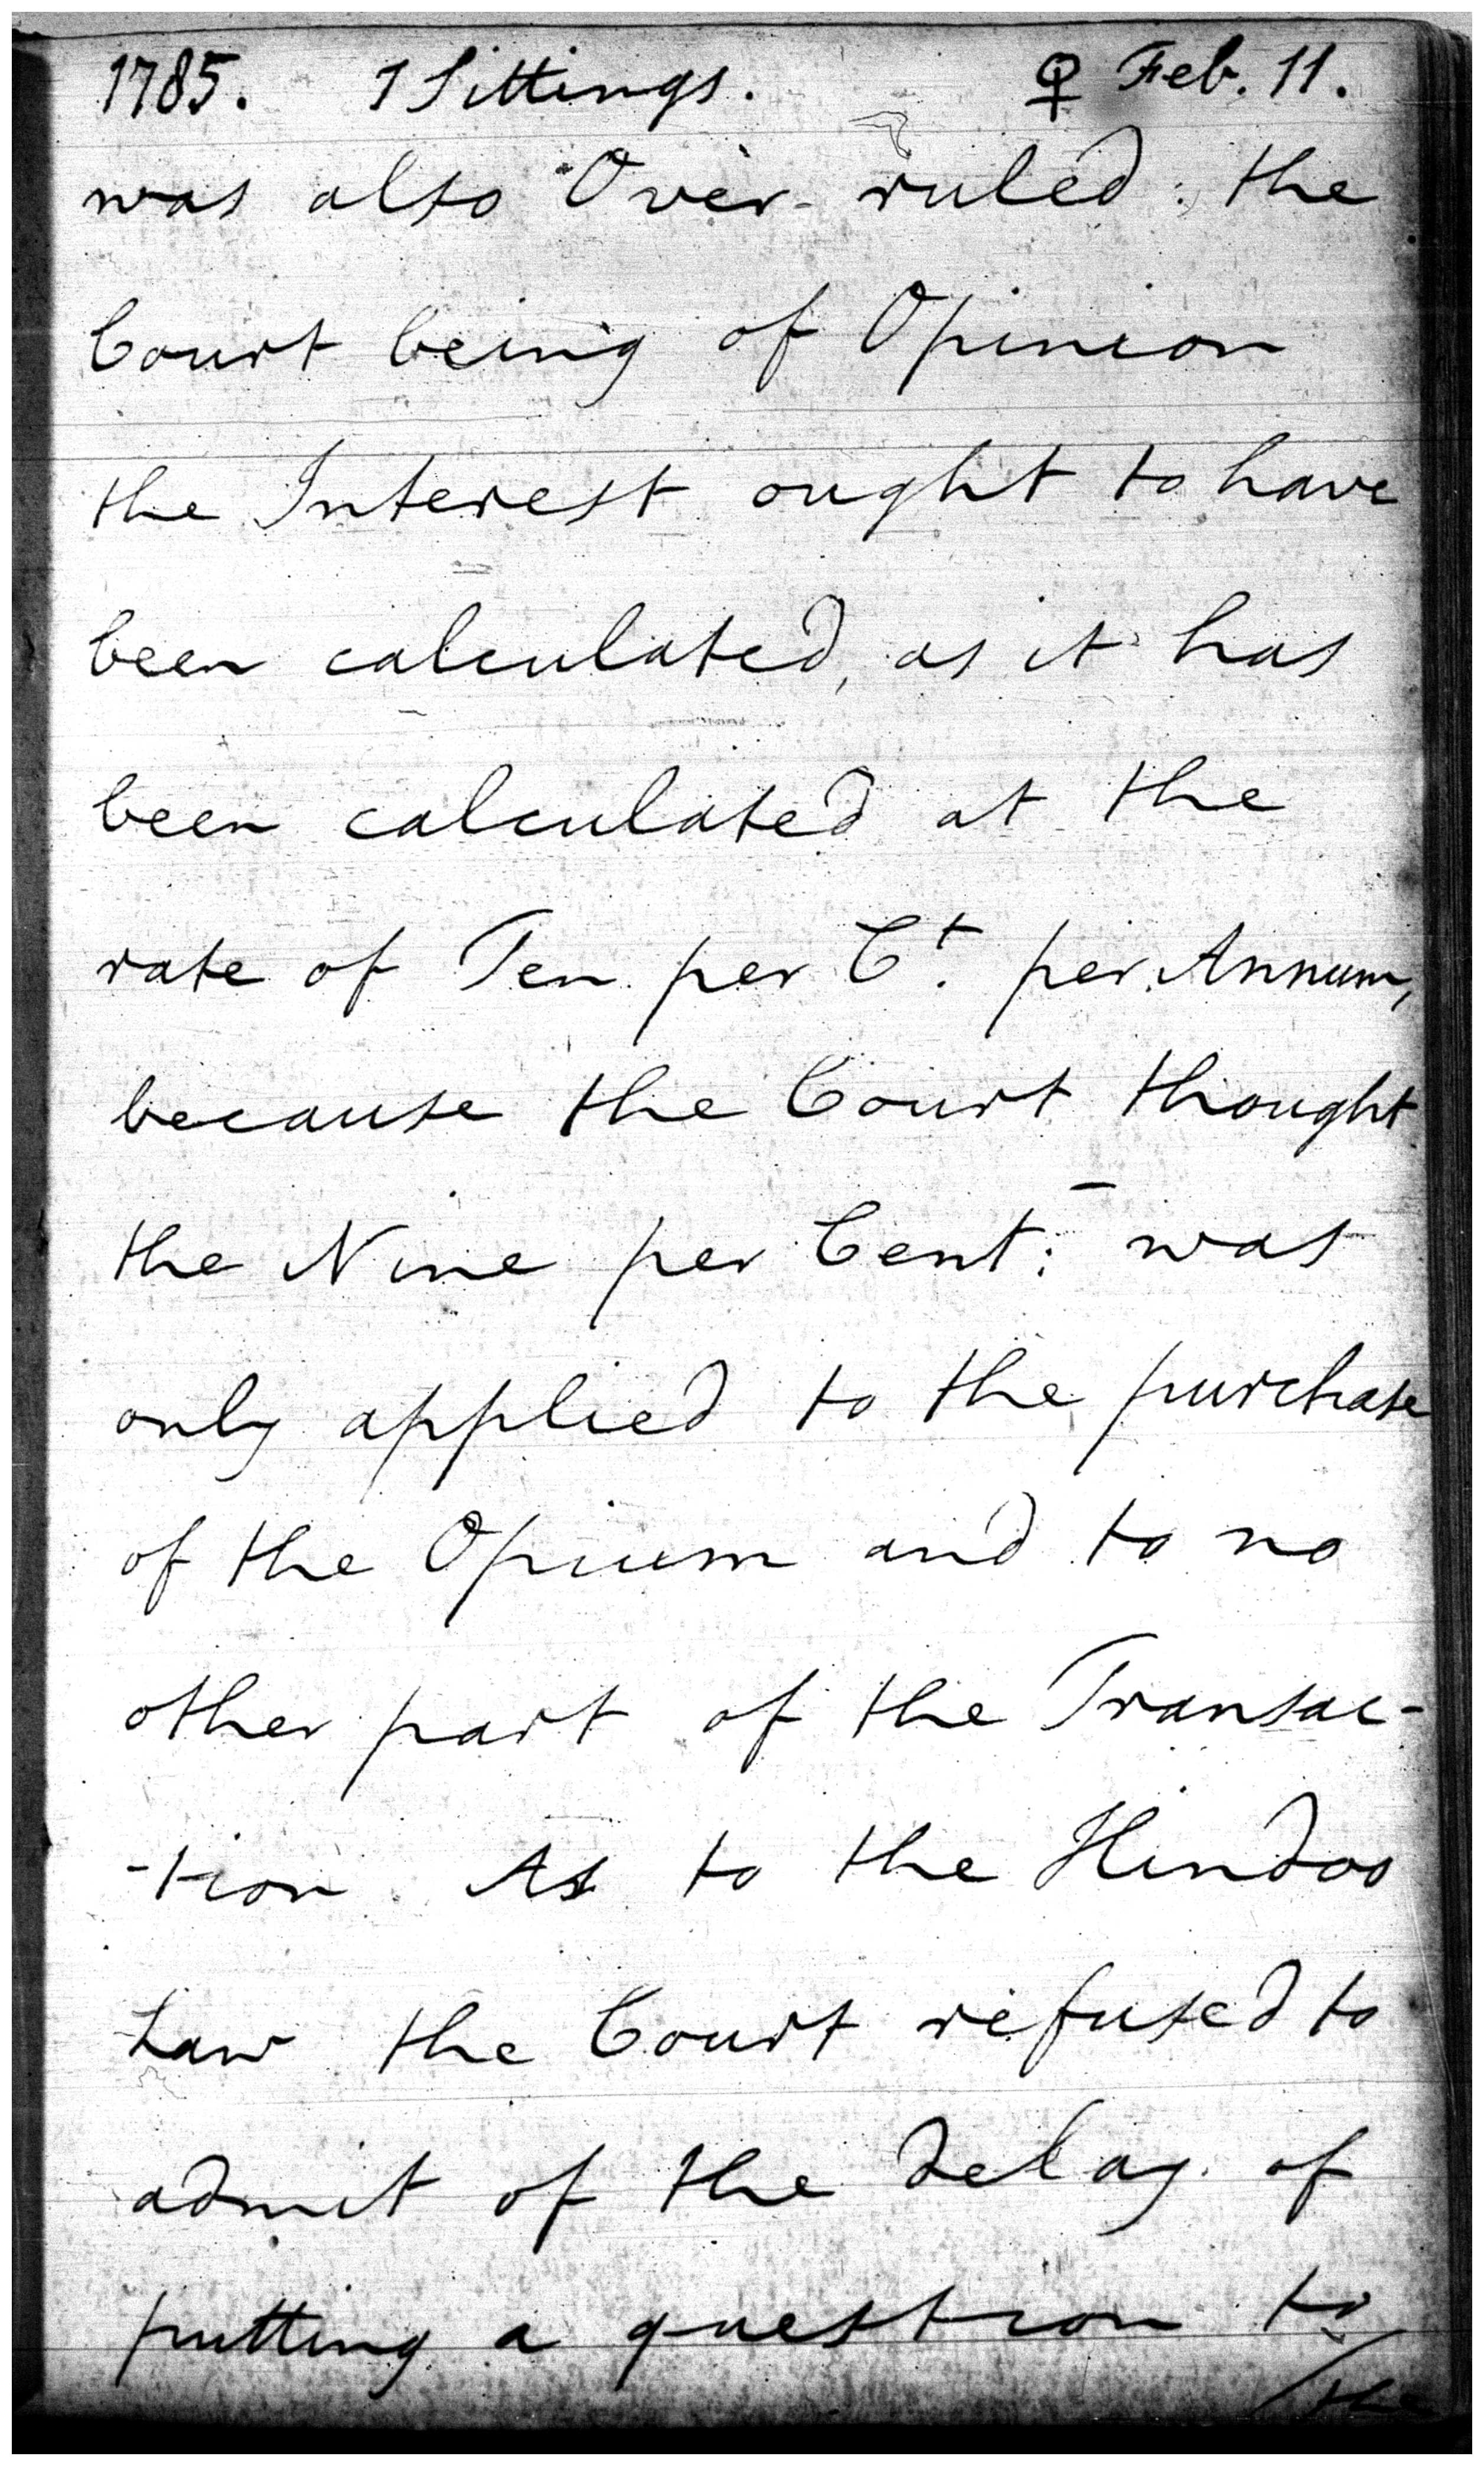 1785. 1 Sittings. ♀ Feb. 11.
was also Over-ruled: the
Court being of Opinion
the Interest ought to have
been calculated, as it has
been calculated at the
rate of Ten per Ct. per Annum,
because the Court thought
the Nine per Cent: was
only applied to the purchase
of the Opium and to no
other part of the Transac-
-tion. As to the Hindoo
Law the Court refused to
admit of the delay of
putting a question to
/the